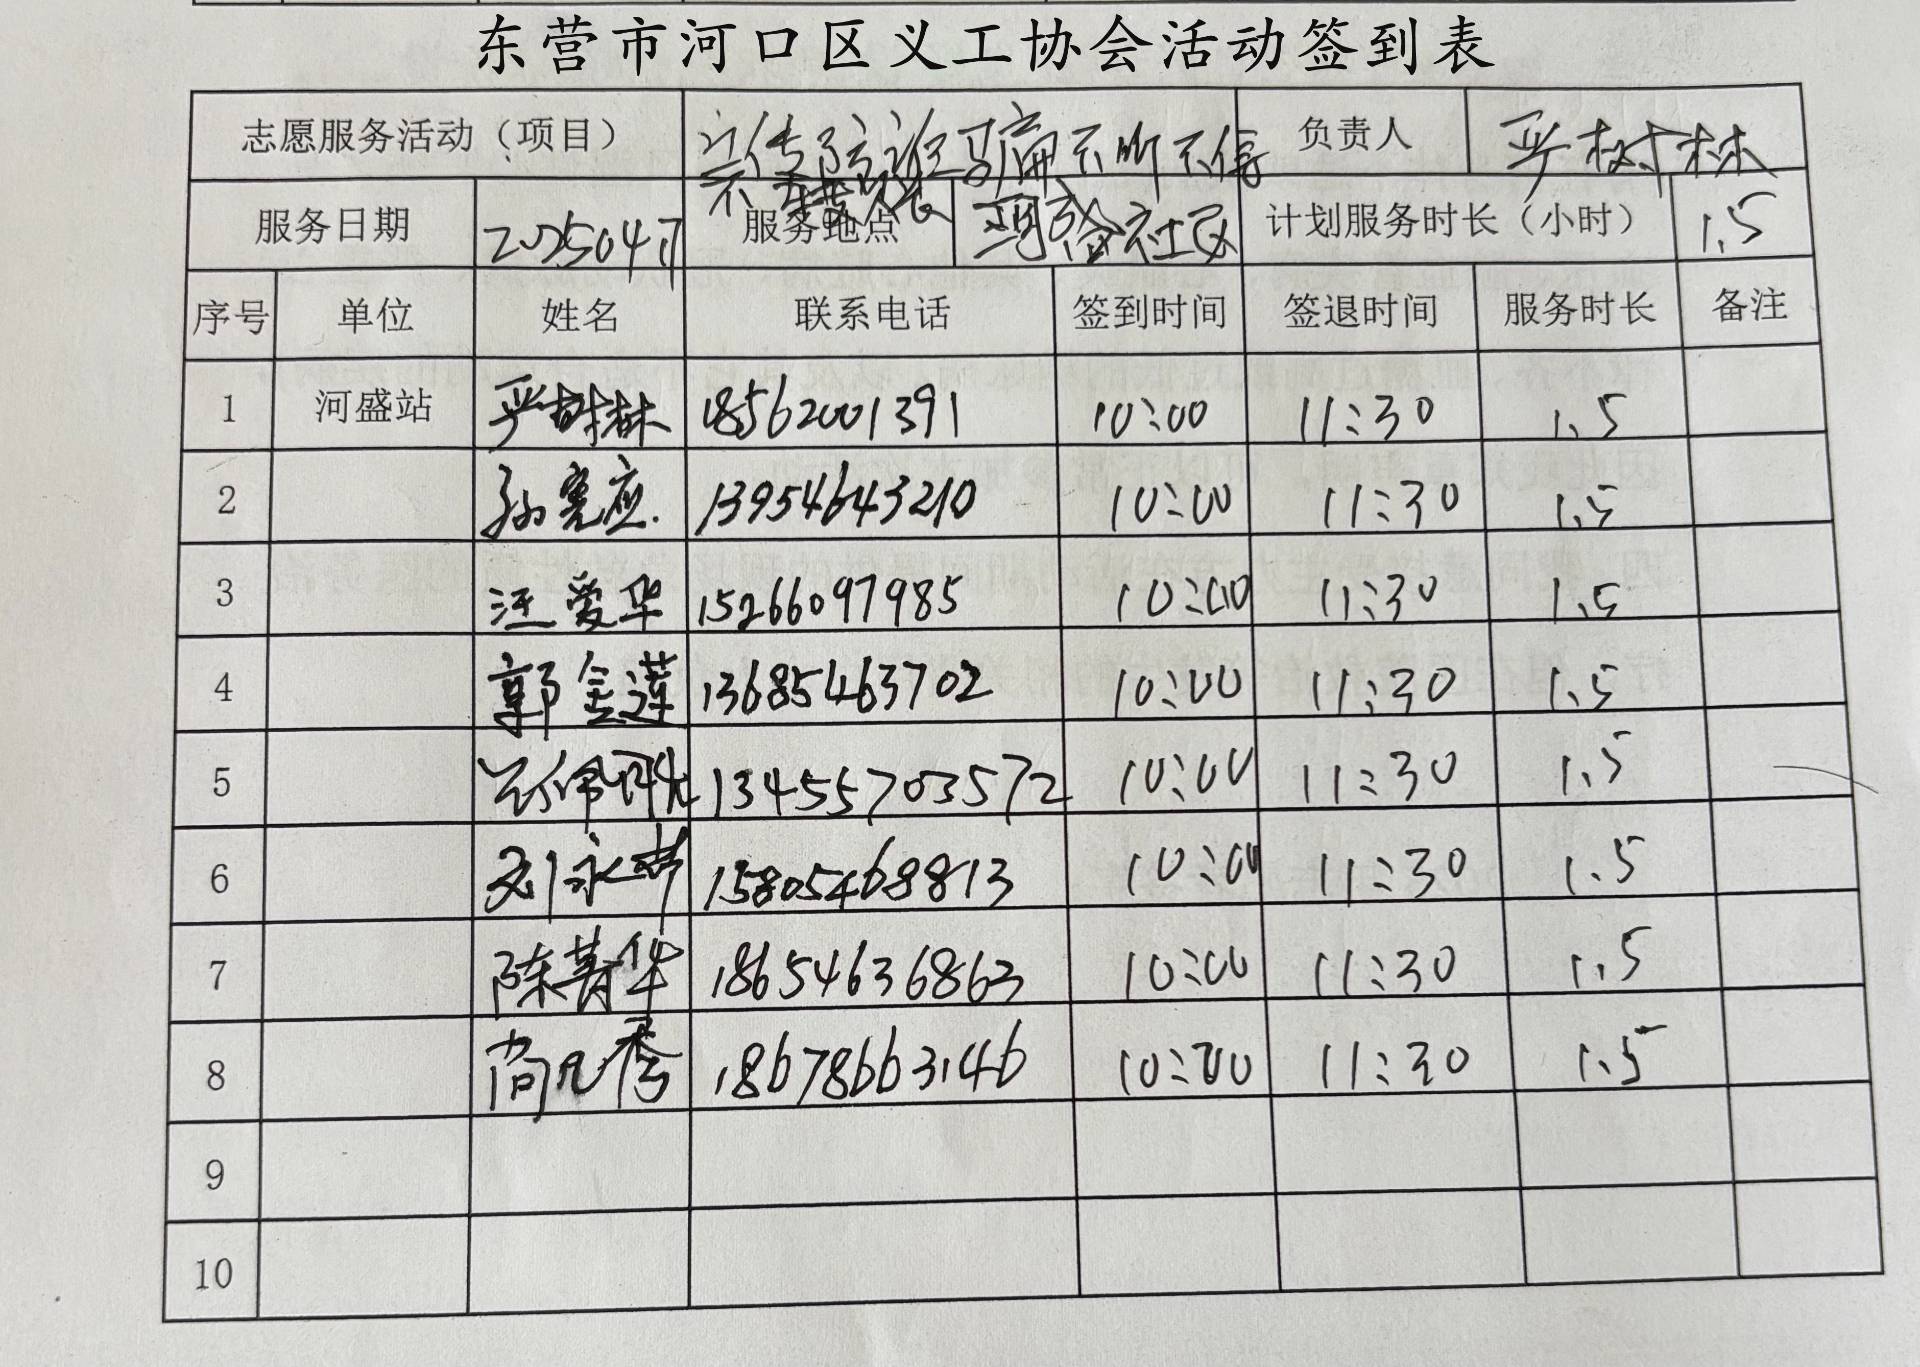 东营市河口区义工协会活动签到表
志愿服务活动（项目） 宣传防诈骗不听不信 负责人 严树林
不转账
服务日期 服务地点 社区 计划服务时长（小时） 1.5
序号 单位 姓名 联系电话 签到时间 签退时间 服务时长 备注
1 河盛站 严树林 18562001391 10:00 11:30 1.5
2 孙宪应 13954643210 10:00 11:30 1.5
3 汪爱华 15266097985 10:00 11:30 1.5
4 郭金莲 13685463702 10:00 11:30 1.5
5 13455703572 10:00 11:30 1.5
6 刘永 15805468813 10:00 11:30 1.5
7 陈菁华 18654636863 10:00 11:30 1.5
8 尚凡秀 18678663146 10:00 11:30 1.5
9
10